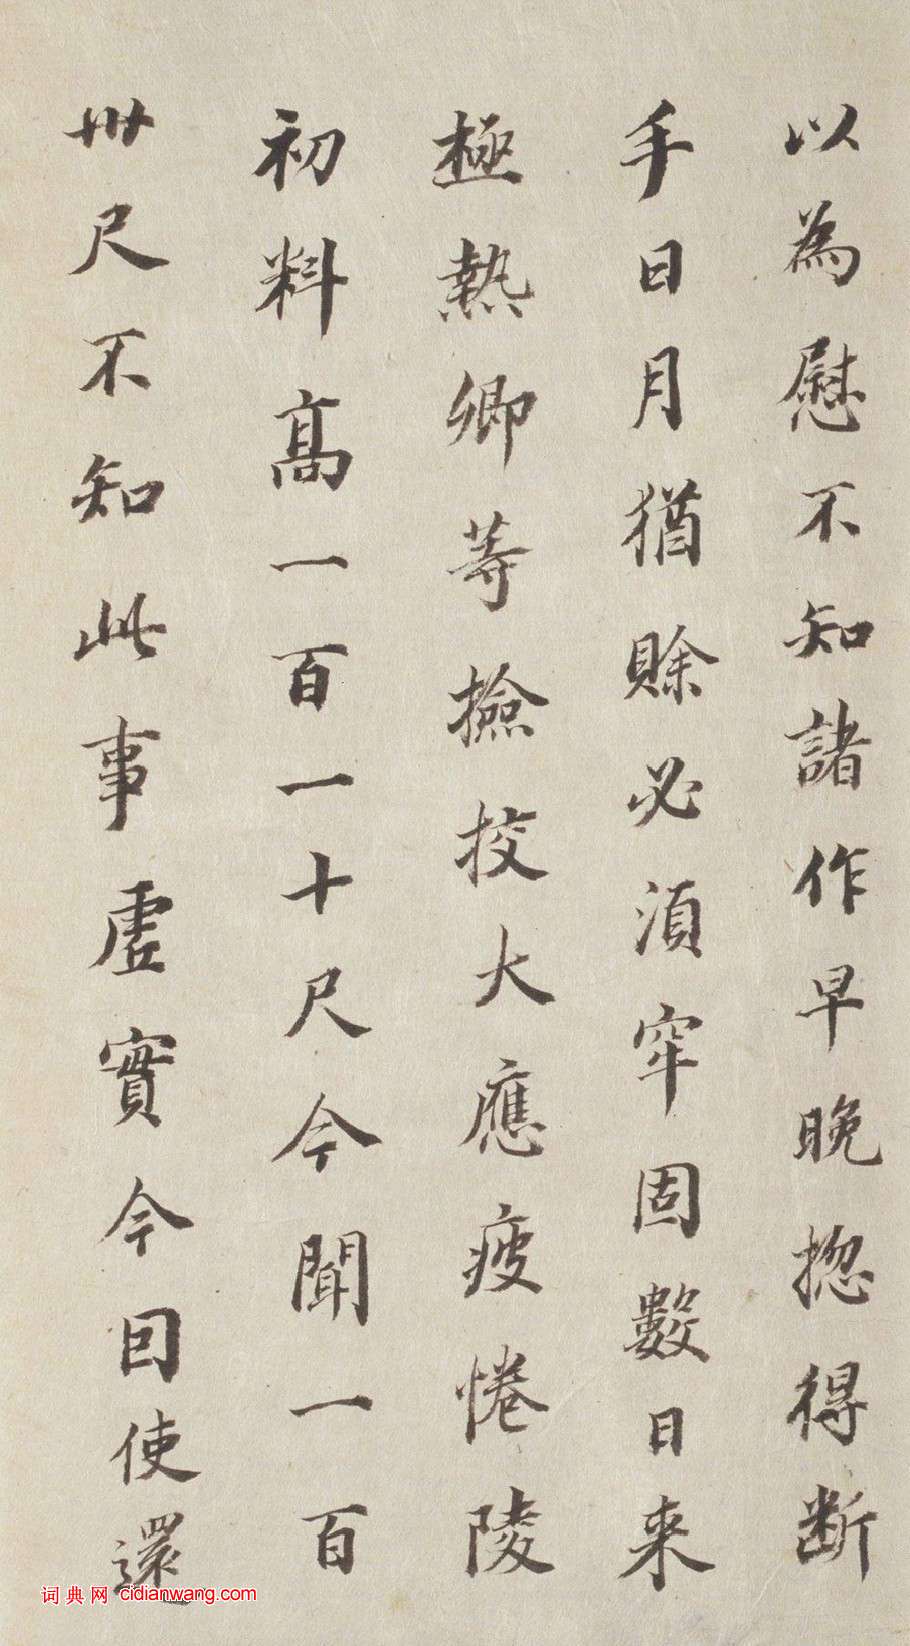 以為慰不知諸作早晚揔得断
手日月猶賒必湏牢固數日来
極熱卿等撿挍大應疲惓陵
初料髙一百一十尺今聞一百
卅尺不知此事虛實今囙使還
词典网 cidianwang.com